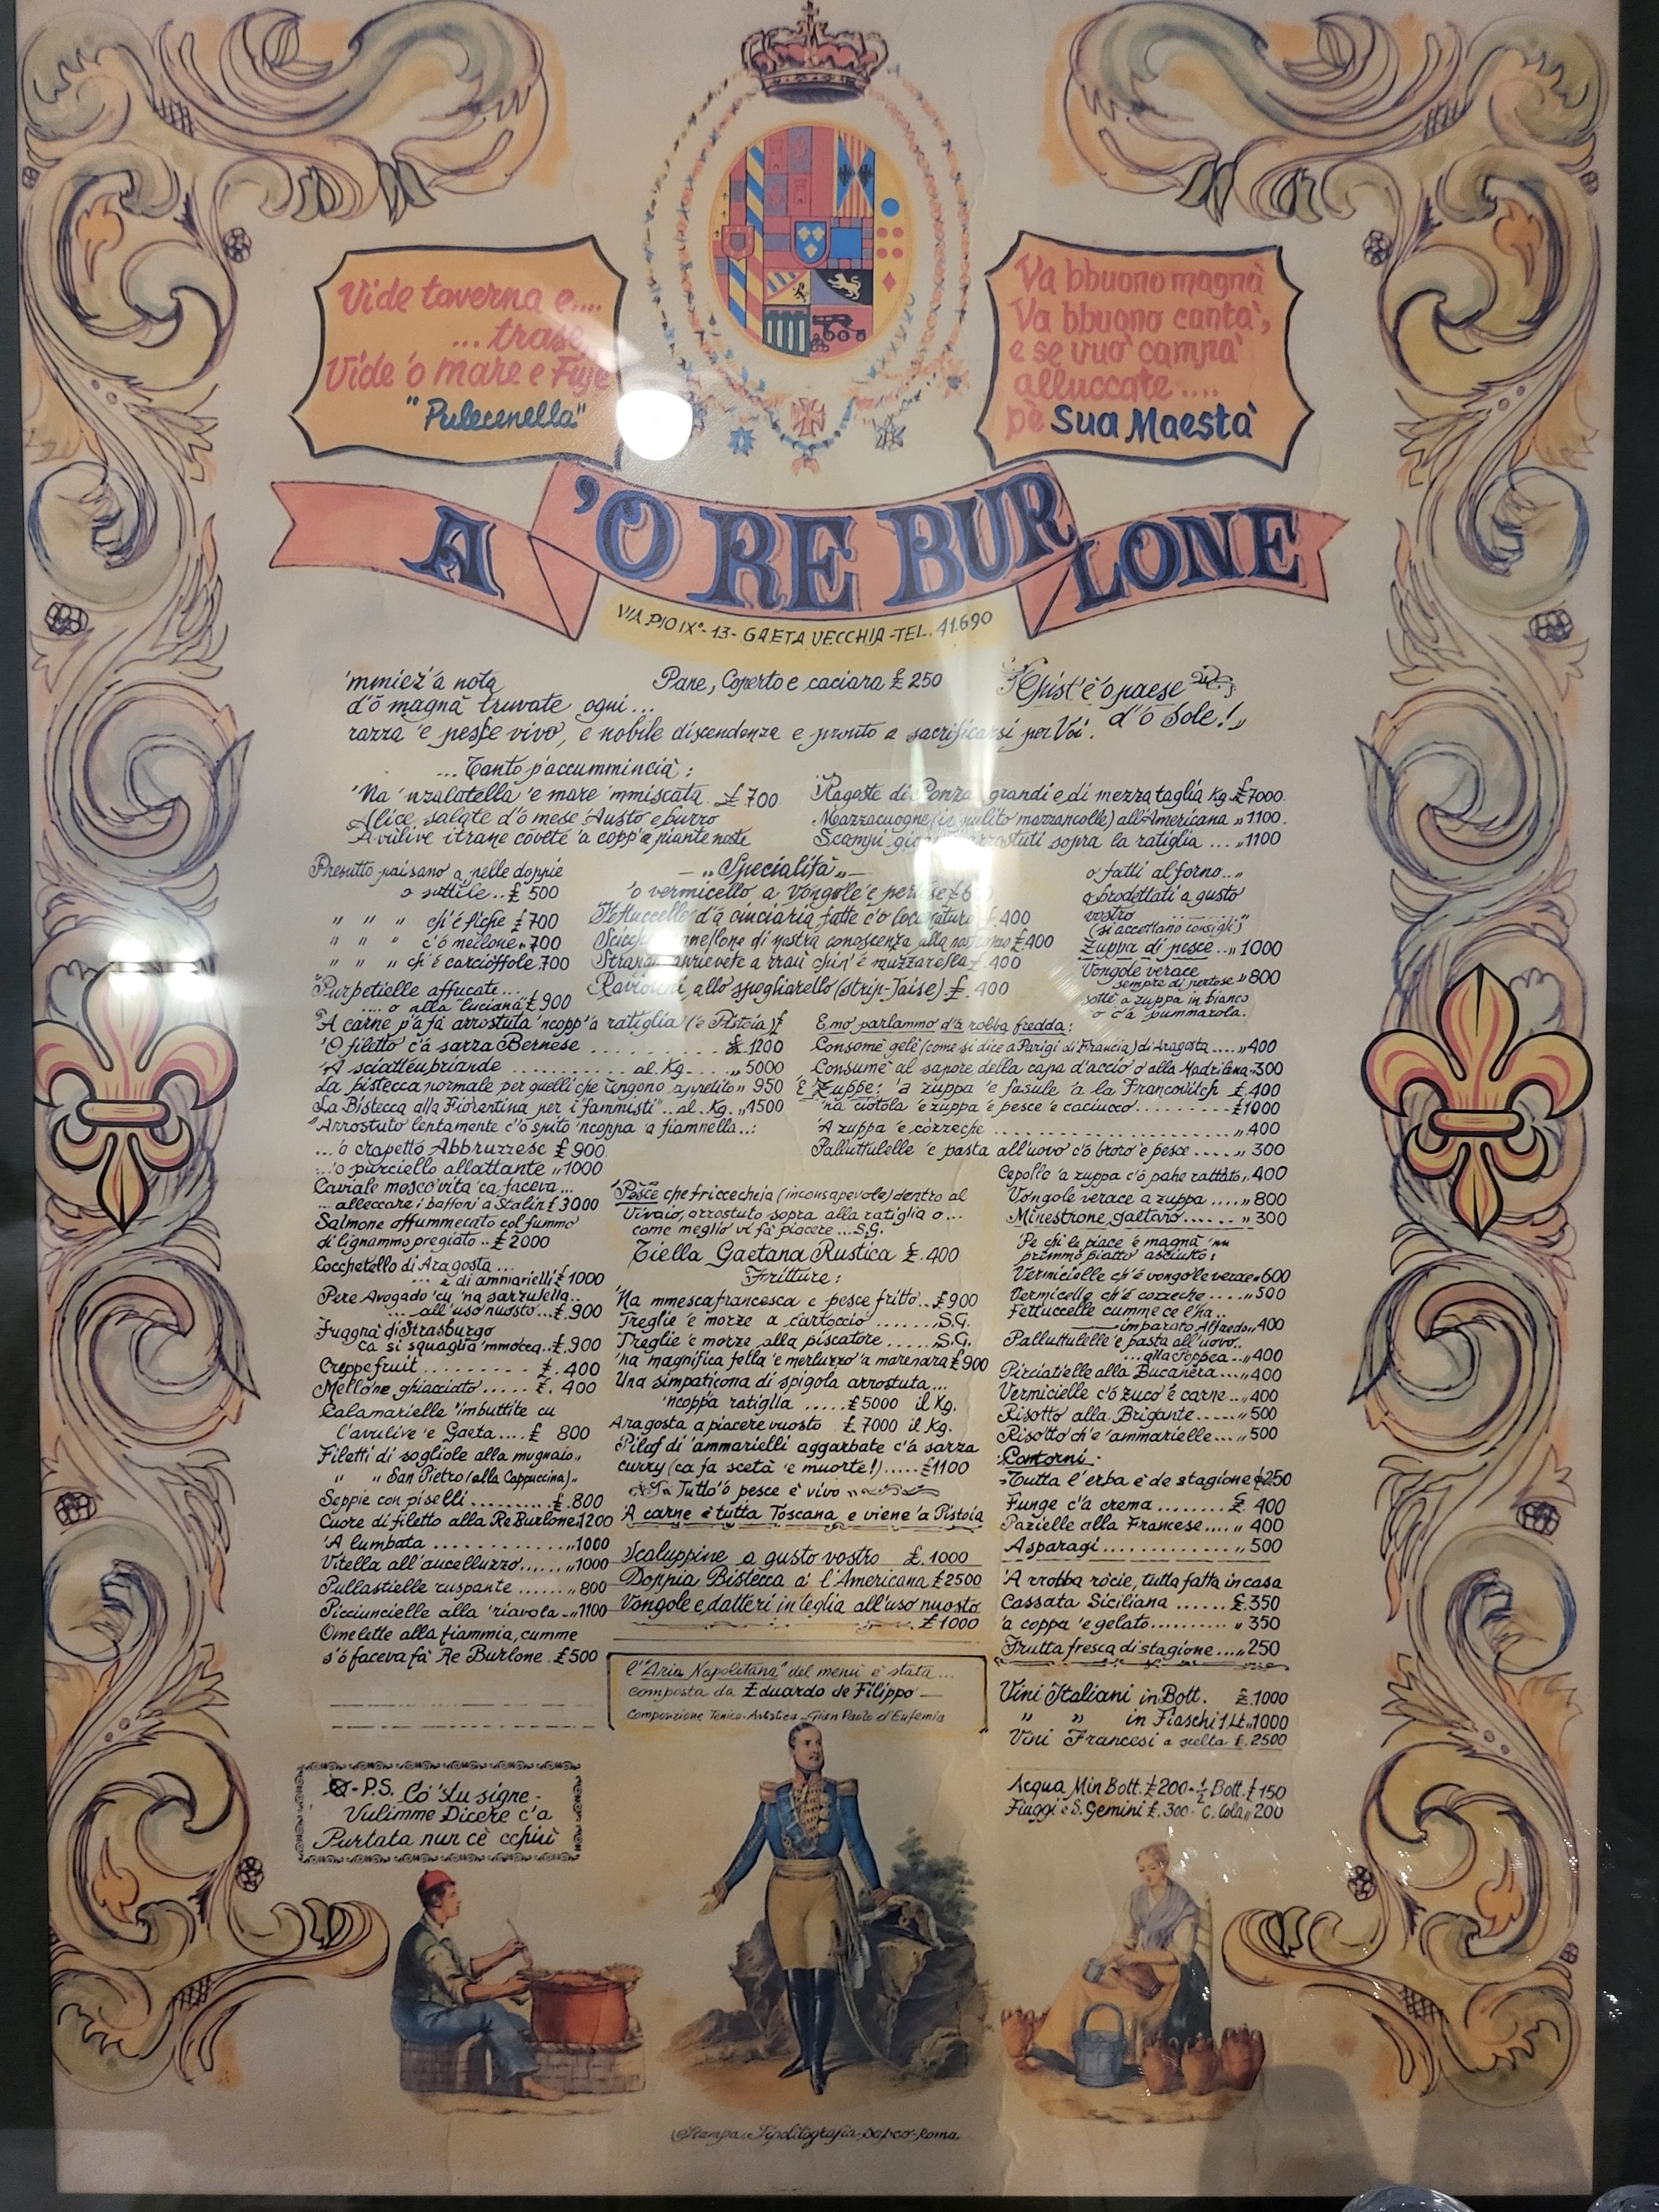 Vide taverna e....
... trase
Vide 'o mare e Fuje
"Pulecenella"
Va bbuono magnà
Va bbuono canta',
e se vuo' campa'
alluccate....
pè Sua Maestà
A 'O RE BURLONE
VIA PIO IX°-13- GAETA VECCHIA-TEL. 41.690
'mmiez' a nota
d'ò magnà truvate ogni...
razza 'e pesce vivo, e nobile discendenza e pronto a sacrificarsi per Voi.
Pane, Coperto e caciara £ 250
Chist'è 'o paese
d'o Sole!„
...Tanto p'accummincià:
'Na 'nzalatella 'e mare 'mmiscata £ 700
Alice salate d'ò mese 'Austo e burro
Avulive itrane covete 'a copp'a piante noste
Ragoste di Ponza grandi e di mezza taglia Kg. £7000.
Mazzacuogne (in pulito mazzancolle) all'Americana „ 1100.
sopra la ratiglia ... „1100
Presutto paisano a pelle doppie
o suttile.. £ 500
„ „ „ ch'è fiche £ 700
„ „ „ c'ò mellone „ 700
„ „ „ ch'è carcioffole 700
Purpetielle affucate...
.... o alla "luciana" £ 900
„Specialità„
'o vermicello a vongole 'e
d'à cinciaria fatte c'o £.400
di nostra conoscenza alla £400
'e muzzarella £.400
allo spogliarello (strip-Taise) £. 400
o fatti al forno..„
o brodettati a gusto
vostro ........„
(si accettano consigli)
Zuppa di pesce..„ 1000
Vongole verace
sempre di pertose „ 800
sotte a zuppa in bianco
o c'à pummarola.
'A carne p'a fà arrostuta 'ncopp'a ratiglia ('e Pistoia) £
'O filetto c'à sarza Bernese .......... £. 1200
'A sciatteubriande ........... al Kg. .... „ 5000
La bistecca normale per quelli che tengono appetito „ 950
La Bistecca alla Fiorentina per i "fammisti"... al Kg. „ 4500
"Arrostuto lentamente c'ò spito 'ncoppa 'a fiamnella..:
...'o crapetto Abbruzzese £ 900.
...'o purciello allattante „ 1000
Caviale moscovita ca faceva...
... alleccare i baffoni a Stalin £ 3000
Salmone affummecato col fummo
di lignammo pregiato .. £ 2000
Cocchetello di Aragosta ...
... e di ammiarielli £ 1000
Pere Avogado 'cu 'na sarzulella..
... all'uso nuosto ... £. 900
Fuagrà di Strasburgo
ca si squaglia 'mmocca.. £. 900
Greppefruit ......... £. 400
Mellone ghiacciato ..... £. 400
Calamarielle 'mbuttite cu
l'avulive 'e Gaeta.... £ 800
Filetti di sogliole alla mugnaio„
„ „ San Pietro (alla Cappuccina)„
Seppie con piselli ......... £. 800
Cuore di filetto alla Re Burlone.1200
'A lumbata ............... „1000
Vitella all'aucelluzzo......„1000
Pullastielle ruspante .......„800
Picciuncielle alla 'riavola..„1100
Omelette alla fiammia, cumme
s'ò faceva fà Re Burlone. £ 500
E mo' parlammo d'à robba fredda:
Consomè gelè (come si dice a Parigi di Francia) di Aragosta .... „ 400
Consumè al sapore della capa d'accio o alla Madrilena „ 300
'E Zuppe: 'a zuppa 'e fasule 'a la Francovitch £.400
'na ciotola 'e zuppa 'e pesce 'e caciucco .......... £1000
'A zuppa 'e còzzeche .......................... „.400
Palluttulelle 'e pasta all'uovo c'ò broro 'e pesce ..... „ 300
Cepolle 'a zuppa c'ò pane rattàto „ 400
Vongole verace a zuppa .... „ 800
Minestrone gaetano ....... „ 300
'Pe chi le piace 'e magnà 'nu
primmo piatto asciutto:
Vermicielle ch'è vongole verace „ 600
Vermicelle ch'è cozzeche ...... „ 500
Fettuccelle cumme ce l'ha..
imparato Alfredo „ 400
Palluttulelle 'e pasta all'uovo..
... alla Poppea ... „ 400
Pirciatielle alla Bucanera.... „ 400
Vermicielle c'ò zuco 'e carne .. „ 400
Risotto alla Brigante ..... „ 500
Risotto ch'e 'ammarielle ... „ 500
Contorni:
Tutta l'erba è de stagione £250
Funge c'à crema ........ £. 400
Pazielle alla Francese.... „ 400
Asparagi ................ „. 500
'A rrobba ròcie, tutta fatta in casa
Cassata Siciliana ...... £.350
'a coppa 'e gelato.......... „ 350
Frutta fresca di stagione.... „ 250
Pesce che friccecheia (inconsapevole) dentro al
Vivaio, arrostuto sopra alla ratiglia o ...
come meglio vi fà piacere ... S.G.
Tiella Gaetana Rustica £. 400
Fritture:
'Na mmescafrancesca 'e pesce fritto.. £ 900
Treglie 'e morze a cartoccio ....... S.G.
Treglie 'e morze alla piscatore ..... S.G.
'na magnifica fella 'e merluzzo 'a marenara £ 900
Una simpaticona di spigola arrostuta...
'ncoppa ratiglia ..... £5000 il Kg.
Aragosta a piacere vuosto £ 7000 il Kg.
Pilaf di 'ammarielli aggarbate c'à sarza
curry (ca fa scetà 'e muorte!)..... £1100
Tutto 'o pesce è vivo
'A carne è tutta Toscana e viene 'a Pistoia
Scaluppine a gusto vostro £. 1000
Doppia Bistecca a' l'Americana £ 2500
Vongole e datteri in teglia all'uso nuosto
£ 1000
l'"Aria Napolitana" del menù è stata...
composta da Eduardo de Filippo —
Composizione Tenico-Artistica - Gian Paolo d'Eufemia
Vini Italiani in Bott. £.1000
„ „ in Fiaschi 1 Lt. „1000
Vini Francesi a scelta £.2500
Acqua Min Bott. £200-½ Bott. £150
Fiuggi e S. Gemini £.300- C. Cola „ 200
-P.S. Cò 'stu signe-
Vulimme Dicere c'a
Purtata nun cè cchiù
Stampa: Tipolitografia Roma